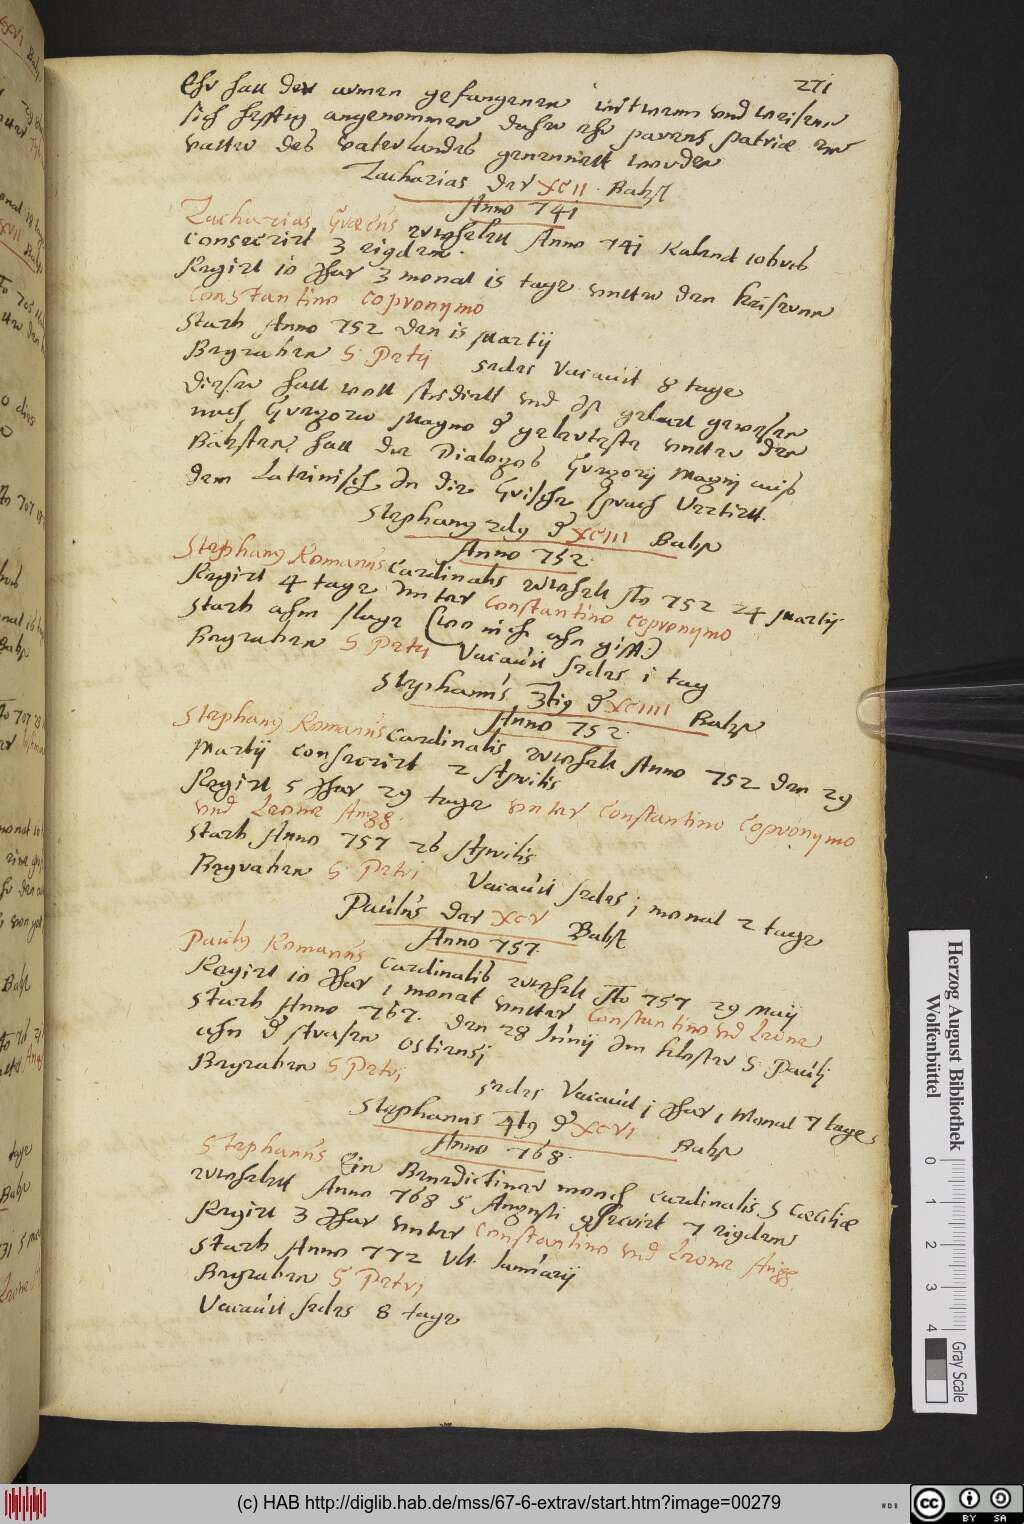 271
Ehr hatt der armen gefangenen wittwenn vnd weisenn
sich hefftig angenommen daher ehr parens patriæ ein
vatter des vaterlandes genennett worden
Zacharias der XCII Babst
Anno 741
Zacharias Græcus erwehlett Anno 741 kalend 10bris
consecrirt 3 eigdem.
Regirt 10 Jhar 3 monat 15 tage vntter den keisernn
Constantino Copronymo
Starb Anno 752 den 15 Martij
Begraben S Petrj sedes Vacauit 8 tage
Dieser hatt woll studiertt vnd ist gelertt gewesen
nach Gregorio Magno der gelerteste vntter den
Bäbsten, hatt die Dialogos Gregorij Magnj auss
dem Lateinisch In die Grische sprach Vertirtt.
Stephanus 2dus der XCIII Babst
Anno 752.
Stephanus Romanus Cardinalis erwehlt Ao 752 24 Martij
Regirt 4 tage vnter Constantino Copronymo
Starb ahm slage (wo nich ahn gifft)
Begraben S Petrj Vacauit sedes i tag
Stephanus 3tig der XCIIII Babst
Anno 752.
Stephanus Romanus Cardinalis erwehlt Anno 752 den 29
Martij consecrirt 2 Aprilis
Regirt 5 Jhar 29 tage vnter Constantino Copronymo
vnd Leone Augg.
Starb Anno 757 26 Aprilis
Begraben S Petri Vacauit sedes j monat 2 tage
Paulus der XCV Babst
Anno 757.
Paulus Romanus Cardinalis erwehlt Ao 757 29 Maij
Regirt 10 Jhar 1 monat vntter Constantino vnd Leone
Starb Anno 767. den 28 Junij Im kloster S. Paulj
ahn der strasen Ostiensj
Begraben S Petrj sedes Vacauit j Jhar 1 Monat 7 tage
Stephanus 4tus der XCVI Babst
Anno 768.
Stephanus Ein Benedictiner monch Cardinalis S Cæciliæ
erwehlett Anno 768 5 Augusti consecrirt 7 eigdem
Regirt 3 Jhar vnter Constantino vnd Leone Augg.
Starb Anno 772 Vlt. Januarij
Begraben S Petrj
Vacauit sedes 8 tage
Herzog August Bibliothek
Wolfenbüttel
0 1 2 3 4
Gray Scale
(c) HAB http://diglib.hab.de/mss/67-6-extrav/start.htm?image=00279
WDB
CC BY SA